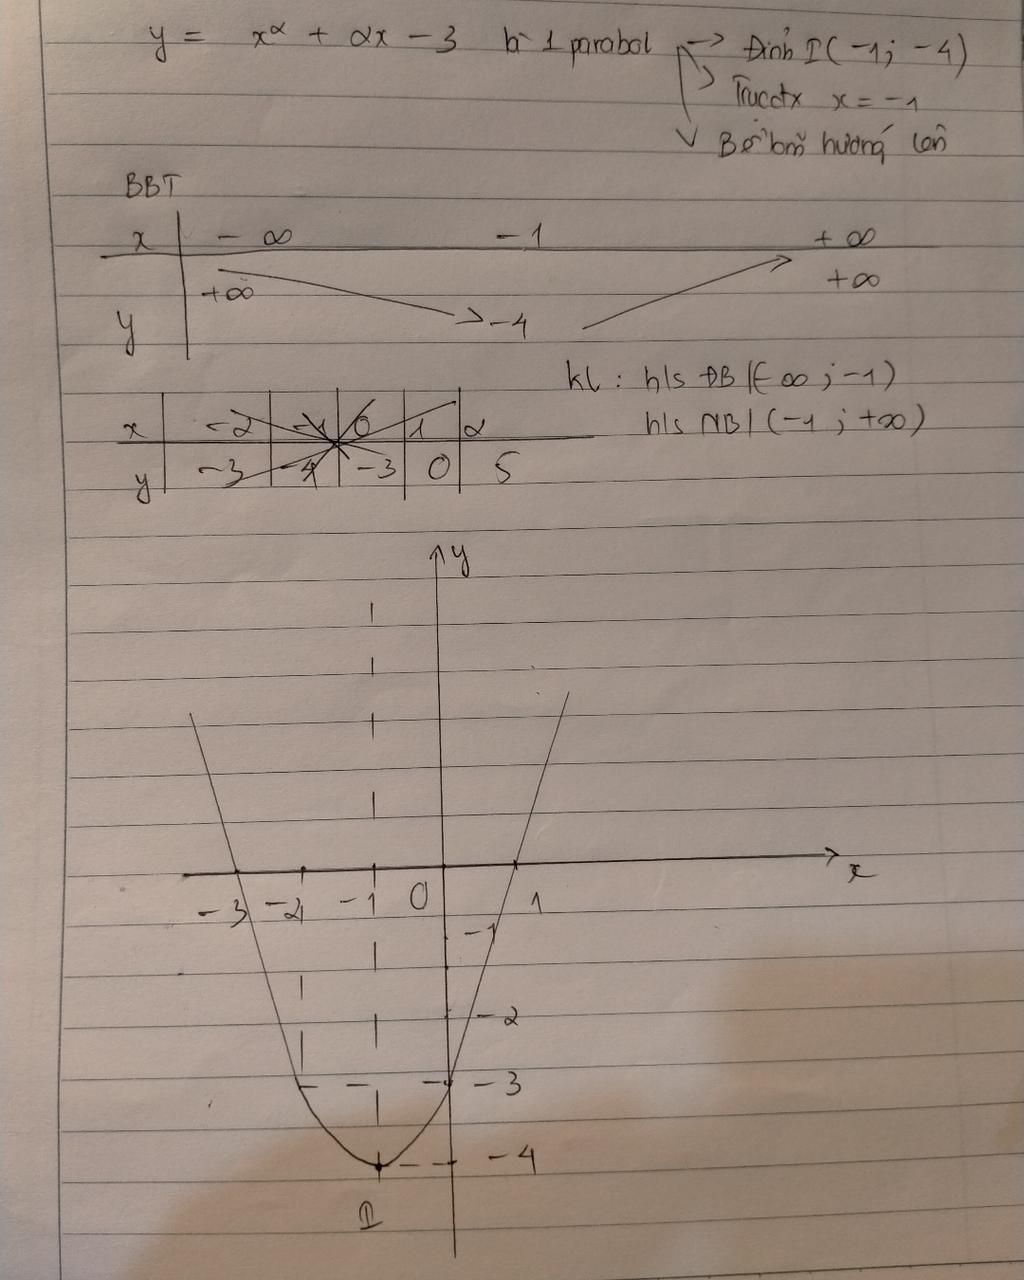 y = x² + 2x - 3 là 1 parabol → Đỉnh I(-1; -4)
Trụcđx x = -1
Bề lõm hướng lên
BBT
x | - ∞ -1 + ∞
+∞ +∞
y -4
kl : h/s ĐB/(-∞ ; -1)
h/s NB/(-1 ; +∞)
x | -2 | -1 | 0 | 1 | 2
y | -3 | -4 | -3 | 0 | 5
y
x
-3 -2 -1 0 1
-1
-2
-3
-4
I